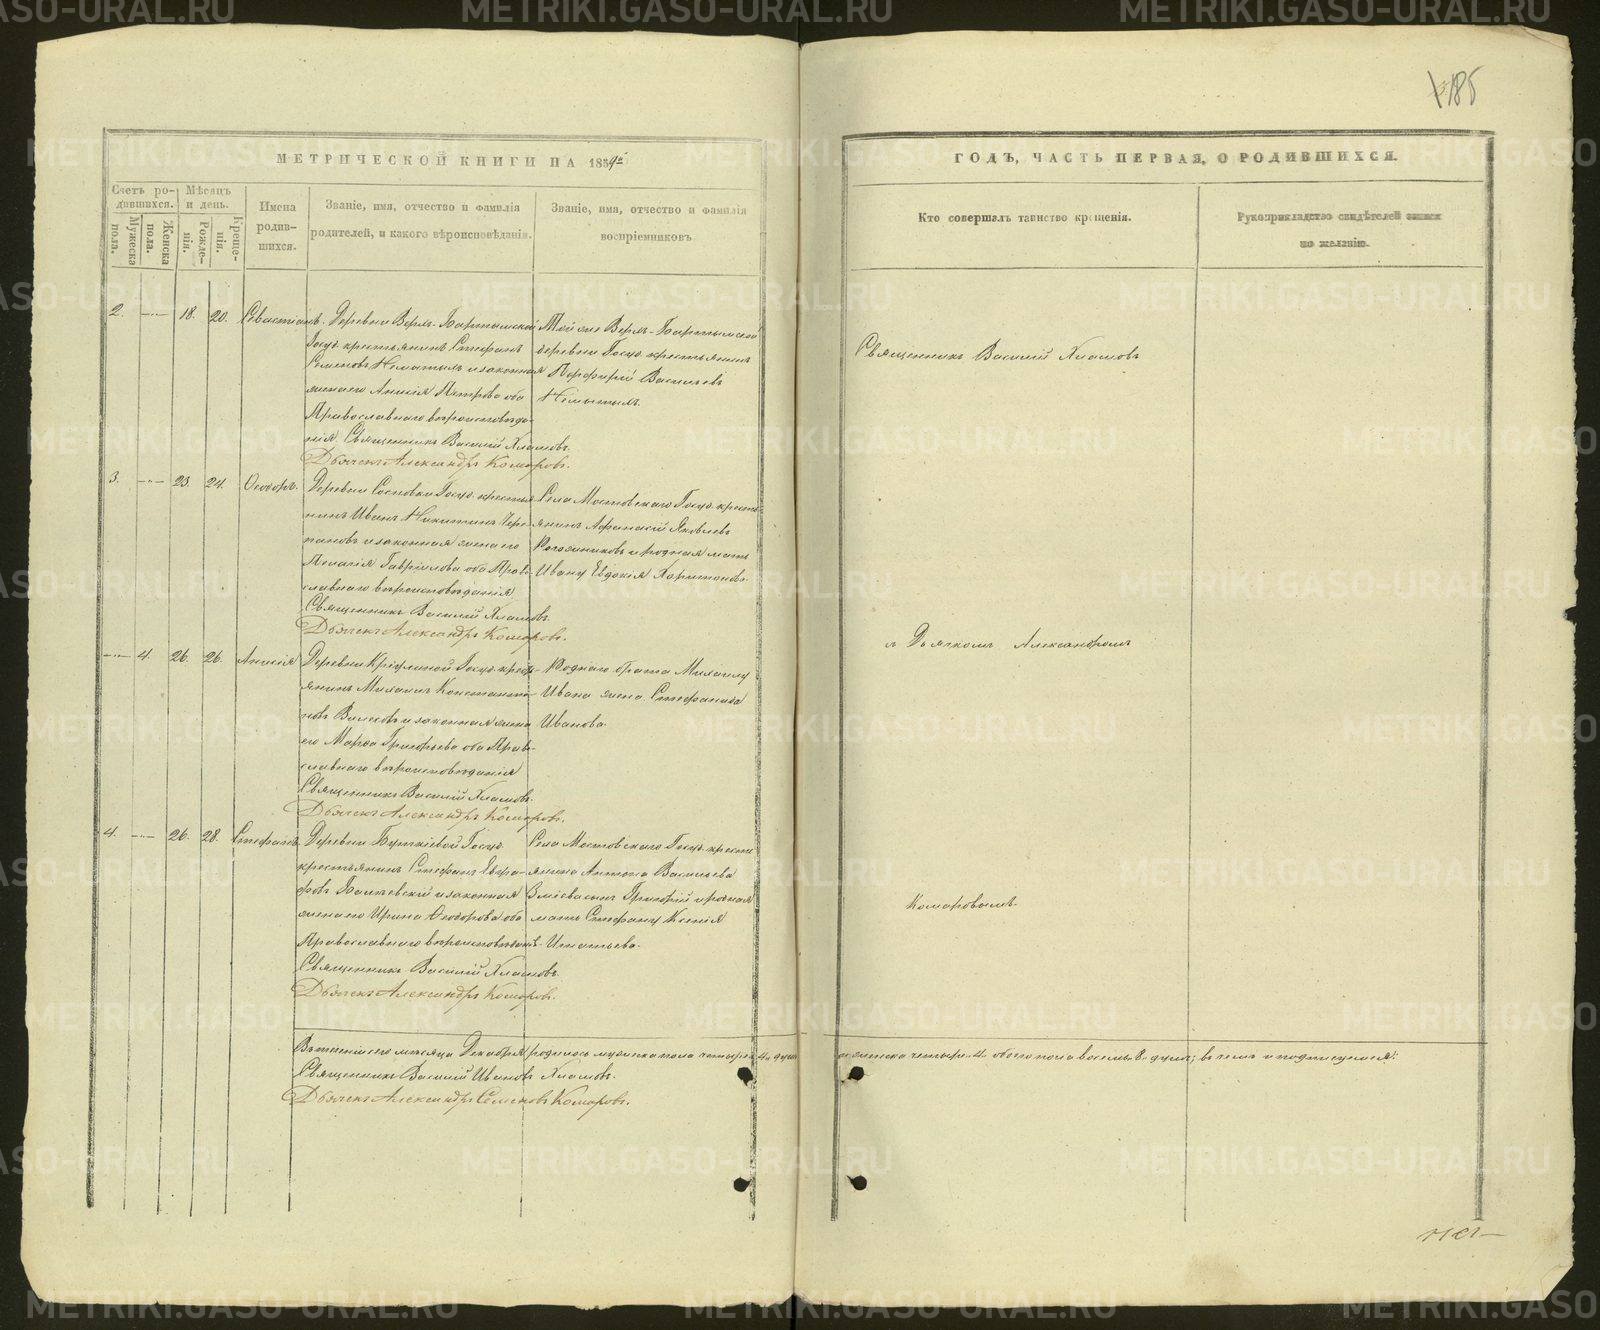 185
МЕТРИЧЕСКОЙ КНИГИ НА 1859й
ГОДЪ, ЧАСТЬ ПЕРВАЯ, О РОДИВШИХСЯ.
Счетъ ро-
дившихся.
Мужеска
пола.
Женска
пола.
Мѣсяцъ
и день.
Рожде-
нія.
Креще-
нія.
Имена
родив-
шихся.
Званіе, имя, отчество и фамилія
родителей, и какого вѣроисповѣданія.
Званіе, имя, отчество и фамилія
воспріемниковъ
Кто совершалъ таинство крещенія.
Рукоприкладство свидѣтелей записи
по желанію.
2. 18. 20. Севастіанъ.
Деревни Верхъ-Бартымской
Госуд. крестьянинъ Стефанъ
Семеновъ и законная
жена его Анисія Петрова оба
Православнаго вѣроисповѣда-
нія. Священникъ Василій Хламовъ.
Дьячекъ Александръ Комаровъ.
Той же Верхъ-Бартымской
деревни Госуд. крестьянинъ
Порфирій Васильевъ
Священникъ Василій Хламовъ
3. 23. 24. Ѳеодоръ.
Деревни Сосновки Госуд. крестья-
нинъ Иванъ Никитинъ Чере-
пановъ и законная жена его
Пелагія Гавріилова оба Право-
славнаго вѣроисповѣданія
Священникъ Василій Хламовъ.
Дьячекъ Александръ Комаровъ.
Села Мостовскаго Госуд. кресть-
янинъ Афанасій Яковлевъ
и родная мать
Ивану Евдокія Харитонова.
съ Дьячкомъ Александромъ
4. 26. 26. Анисія
Деревни Госуд. кресть-
янинъ Михаилъ Константи-
новъ и законная жена
его Марѳа Григорьева оба Прав-
славнаго вѣроисповѣданія
Священникъ Василій Хламовъ.
Дьячекъ Александръ Комаровъ.
Роднаго брата Михаилу
Ивана жена Стефанида
Иванова.
4. 26. 28. Стефанъ.
Деревни Госуд.
крестьянинъ Стефанъ Евгра-
фовъ и законная
жена его Ирина Ѳеодорова оба
Православнаго вѣроисповѣдан.
Священникъ Василій Хламовъ.
Дьячекъ Александръ Комаровъ.
Села Мостовскаго Госуд. кресть-
янина Антона Васильева
сынъ Григорій и родная
мать Стефану Ксенія
Игнатьева.
Комаровымъ.
Въ теченіи сего мѣсяца Декабря родилось мужеска пола четыре 4. души
а женска четыре 4. обоего пола восемь 8. душъ; въ чемъ и подписуемся:
Священникъ Василій Ивановъ Хламовъ.
Дьячекъ Александръ Семеновъ Комаровъ.
METRIKI.GASO-URAL.RU